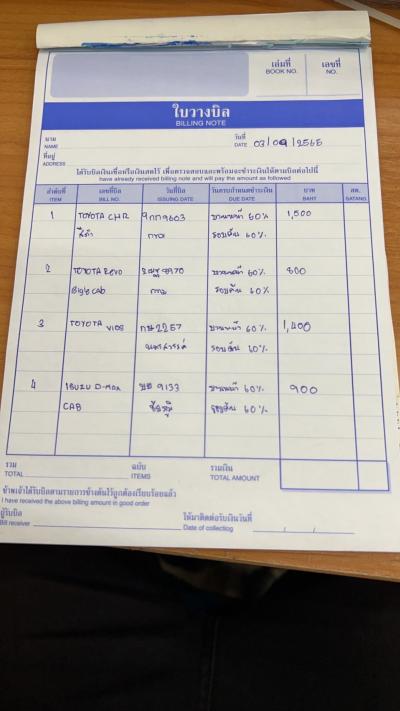 เล่มที่ เลขที่
BOOK NO. NO.
ใบวางบิล
BILLING NOTE
นาม วันที่
NAME DATE 03/09/2565
ที่อยู่
ADDRESS
ได้รับบิลเงินเชื่อหรือเงินสดไว้ เพื่อตรวจสอบและพร้อมจะชำระเงินให้ตามบิลต่อไปนี้
have already received billing note and will pay the amount as followed
ลำดับที่ เลขที่บิล วันที่บิล วันครบกำหนดชำระเงิน บาท สต.
ITEM BILL NO. ISSUING DATE DUE DATE BAHT SATANG
1 TOYOTA CHR 9กก9603 บานหน้า 60% 1,500
สีดำ กทม รอบคัน 60%
2 TOYOTA Revo 8970 บานหน้า 60% 800
cab กทม รอบคัน 60%
3 TOYOTA VIOS 2257 บานหน้า 60% 1,400
นครสวรรค์ รอบคัน 60%
4 ISUZU D-MAX 9133 บานหน้า 60% 900
CAB ชัยภูมิ รอบคัน 60%
รวม ฉบับ รวมเงิน
TOTAL ITEMS TOTAL AMOUNT
ข้าพเจ้าได้รับบิลตามรายการข้างต้นไว้ถูกต้องเรียบร้อยแล้ว
I have received the above billing amount in good order
ผู้รับบิล ให้มาติดต่อรับเงินวันที่
Bill receiver Date of collecting / /